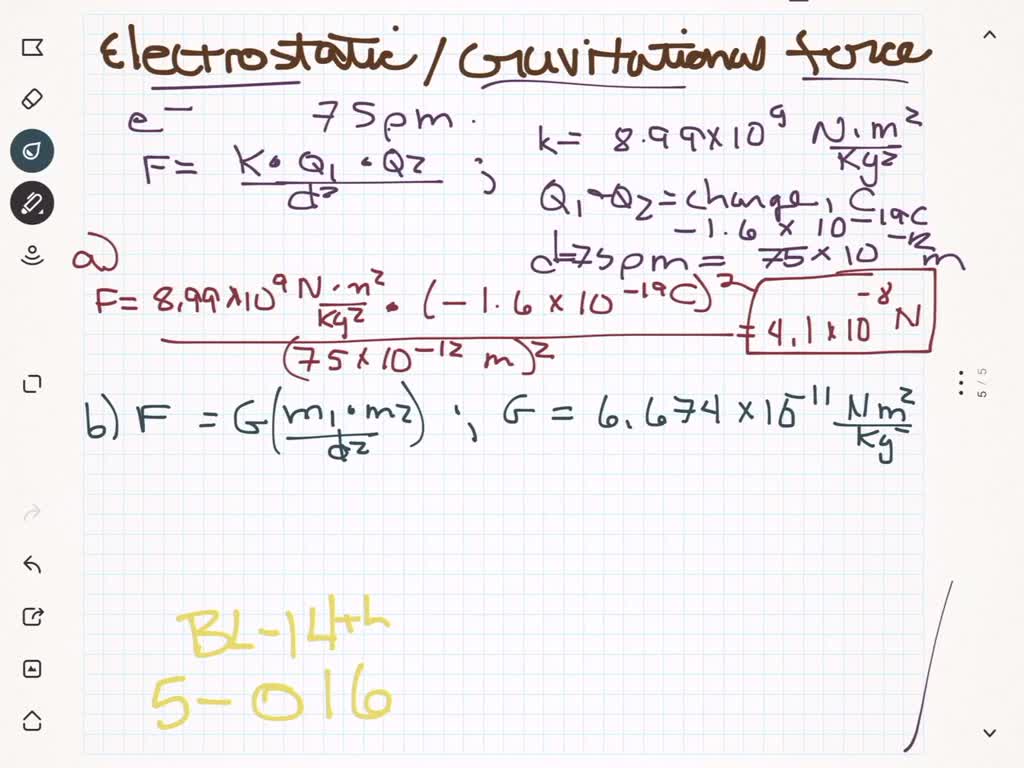 Electrostatic / Gravitational force
e⁻ 75pm.
F = K • Q₁ • Q2 / d² ;
k = 8.99 × 10⁹ N·m² / Kg²
Q₁ - Q₂ = charge, C
-1.6 × 10⁻¹⁹C
d=75pm = 75 × 10⁻¹² m
a)
F = 8.99 × 10⁹ N·m² / Kg² • (-1.6 × 10⁻¹⁹C)² / (75 × 10⁻¹² m)² = 4.1 × 10⁻⁸ N
b) F = G(m₁ • m2 / d²) ; G = 6.674 × 10⁻¹¹ Nm² / Kg
BL-14th
5-016
5 / 5